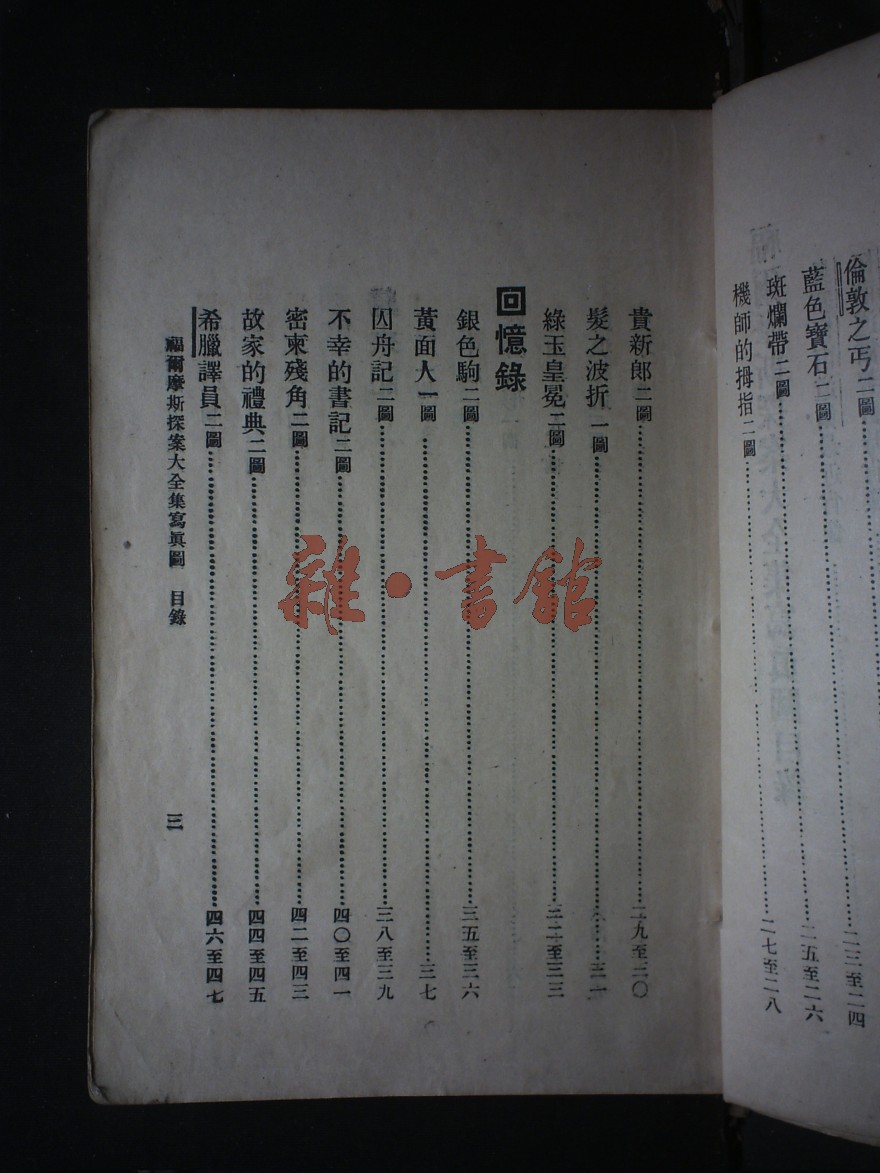 倫敦之丐二圖……二三至二四
藍色寶石二圖……二五至二六
斑斕帶二圖……
機師的拇指二圖……二七至二八
貴新郎二圖……二九至三〇
髮之波折一圖……三一
綠玉皇冕二圖……三二至三三
回憶錄
銀色駒二圖……三五至三六
黃面人一圖……三七
囚舟記二圖……三八至三九
不幸的書記二圖……四〇至四一
密柬殘角二圖……四二至四三
故家的禮典二圖……四四至四五
希臘譯員二圖……四六至四七
福爾摩斯探案大全集寫眞圖 目錄
三
雜·書館